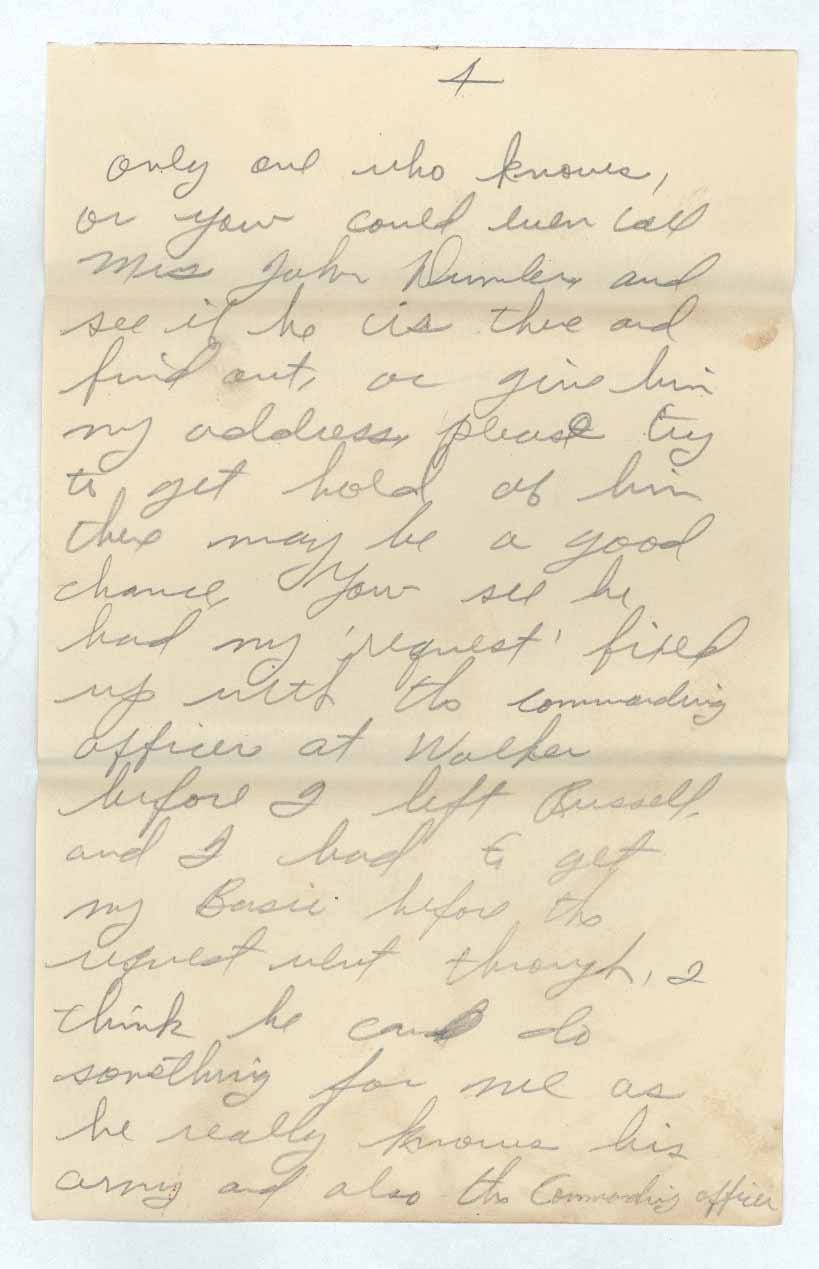 4
only one who knows,
or you could even call
Mrs John Dumler, and
see if he is there and
find out, or give him
my address, please try
to get hold of him
there may be a good
chance, You see he
had my 'request' fixed
up with the commanding
officer at Walker
before I left Russell,
and I had to get
my Basic before the
request went through, I
think he can do
something for me as
he really knows his
army and also the Commanding officer